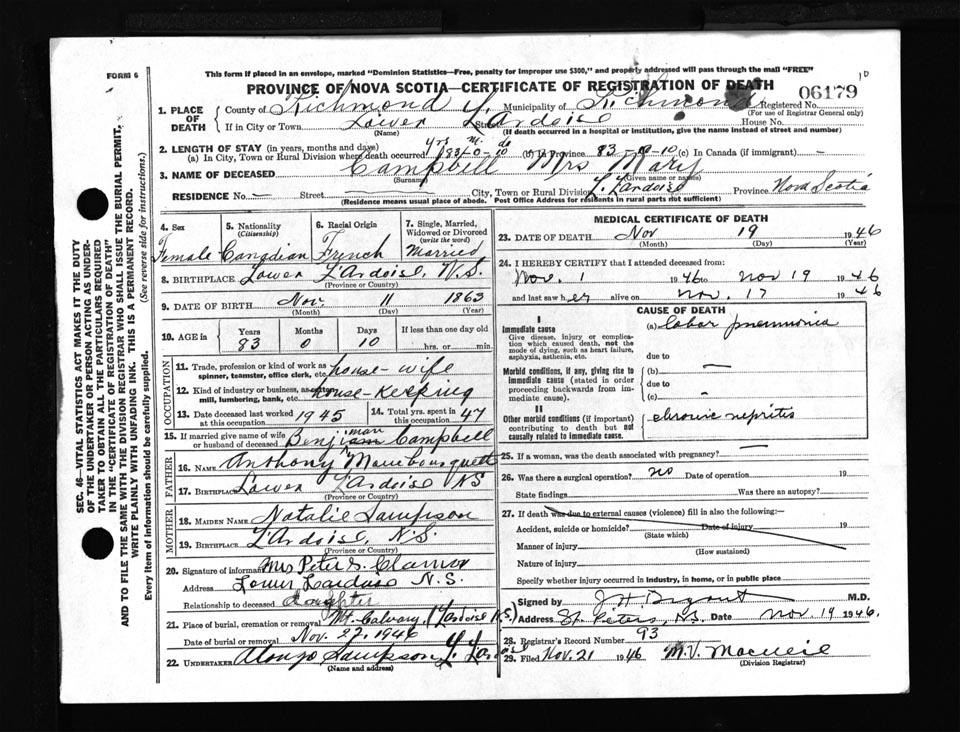 This form if placed in an envelope, marked "Dominion Statistics—Free, penalty for improper use $300," and properly addressed will pass through the mail "FREE"
FORM 6
PROVINCE OF NOVA SCOTIA—CERTIFICATE OF REGISTRATION OF DEATH
06179
1. PLACE OF DEATH
County of Richmond Municipality of Richmond Registered No.
(For use of Registrar General only)
If in City or Town Lower L'Ardoise Street House No.
(Name) (If death occurred in a hospital or institution, give the name instead of street and number)
2. LENGTH OF STAY (in years, months and days) yrs m. ds
(a) In City, Town or Rural Division where death occurred 83-0-10 (b) In Province 83-0-10 (c) In Canada (if immigrant) —
3. NAME OF DECEASED Campbell Mrs Mary
(Surname) (Given name or names)
RESIDENCE No. — Street City, Town or Rural Division L. Lardoise Province Nova Scotia
(Residence means usual place of abode. Post Office Address for residents in rural parts not sufficient)
4. Sex 5. Nationality (Citizenship) 6. Racial Origin 7. Single, Married, Widowed or Divorced (write the word)
Female Canadian French Married
8. BIRTHPLACE Lower L'Ardoise, N.S.
(Province or Country)
9. DATE OF BIRTH Nov. 11 1863
(Month) (Day) (Year)
10. AGE in Years Months Days If less than one day old
83 0 10 hrs. or min.
OCCUPATION
11. Trade, profession or kind of work as spinner, teamster, office clerk, etc. house-wife
12. Kind of industry or business, as cotton mill, lumbering, bank, etc. house-keeping
13. Date deceased last worked at this occupation 1945 14. Total yrs. spent in this occupation 47
15. If married give name of wife or husband of deceased Benjiman Campbell
FATHER
16. NAME Anthony Mombourquett
17. BIRTHPLACE Lower L'Ardoise NS
(Province or Country)
MOTHER
18. MAIDEN NAME Natalie Sampson
19. BIRTHPLACE L'Ardoise, N.S.
(Province or Country)
20. Signature of informant Mrs Peter S.
Address Lower Lardoise N.S.
Relationship to deceased daughter
21. Place of burial, cremation or removal Mt. Calvary, (L'Ardoise N.S.)
Date of burial or removal Nov. 22, 1946
22. UNDERTAKER Alonzo Sampson L. Lardoise
(Name and address)
MEDICAL CERTIFICATE OF DEATH
23. DATE OF DEATH Nov 19 1946
(Month) (Day) (Year)
24. I HEREBY CERTIFY that I attended deceased from:
Nov. 1 1946 to Nov 19 1946
and last saw her alive on Nov. 17 1946
CAUSE OF DEATH
I
Immediate cause (a) lobar pneumonia
Give disease, injury or complication which caused death, not the mode of dying, such as heart failure, asphyxia, asthenia, etc.
due to
Morbid conditions, if any, giving rise to immediate cause (stated in order proceeding backwards from immediate cause).
(b) —
due to
(c) —
II
Other morbid conditions (if important) contributing to death but not causally related to immediate cause.
chronic nepritis
25. If a woman, was the death associated with pregnancy? —
26. Was there a surgical operation? no Date of operation 19
State findings Was there an autopsy?
27. If death was due to external causes (violence) fill in also the following:—
Accident, suicide or homicide? Date of injury 19
(State which)
Manner of injury
(How sustained)
Nature of injury
Specify whether injury occurred in industry, in home, or in public place
Signed by M.D.
Address St. Peters, N.S. Date Nov. 19 1946.
28. Registrar's Record Number 93
29. Filed Nov. 21 1946 M.V. MacNeil
(Division Registrar)
SEC. 46—VITAL STATISTICS ACT MAKES IT THE DUTY OF THE UNDERTAKER OR PERSON ACTING AS UNDERTAKER TO OBTAIN ALL THE PARTICULARS REQUIRED IN THE "CERTIFICATE OF REGISTRATION OF DEATH"
AND TO FILE THE SAME WITH THE DIVISION REGISTRAR WHO SHALL ISSUE THE BURIAL PERMIT.
WRITE PLAINLY WITH UNFADING INK. THIS IS A PERMANENT RECORD.
Every item of information should be carefully supplied. (See reverse side for instructions.)